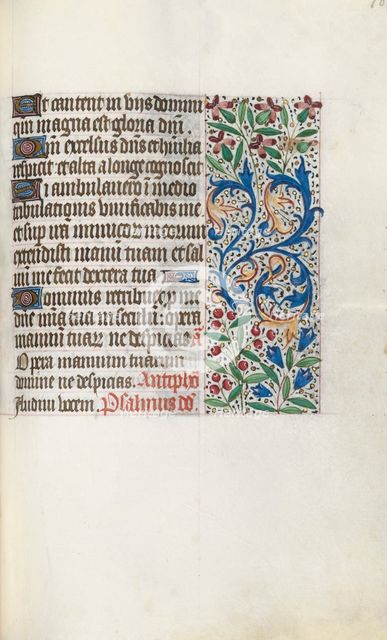 Et cantent in viis domini
qm magna est gloria dni.
Qm excelsus dns et humilia
respicit et alta a longe cognoscit
Si ambulavero i medio
tribulationis vivificabis me
et sup ira inimicor meorum
extendisti manu tuam et sal
vu me fecit dextera tua
Dominus retribuet p me
dne mia tua in seculu opera
manuu tuar ne despicias a
Opera manuum tuarum
domine ne despicias. Antipho
Audivi vocem. Psalmus do